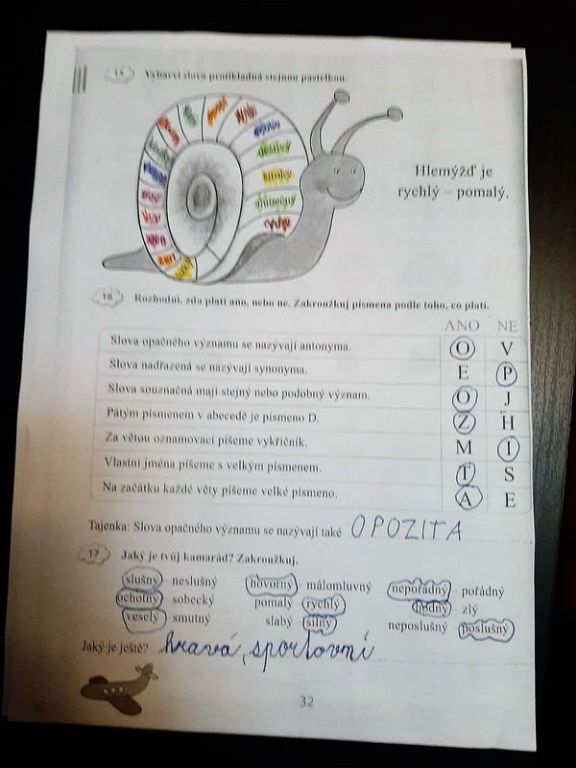 Vybarvi slova protikladná stejnou pastelkou.
deštivý
široký
slunečný
Hlemýžď je
rychlý – pomalý.
16 Rozhodni, zda platí ano, nebo ne. Zakroužkuj písmena podle toho, co platí.
ANO NE
Slova opačného významu se nazývají antonyma. O V
Slova nadřazená se nazývají synonyma. E P
Slova souznačná mají stejný nebo podobný význam. O J
Pátým písmenem v abecedě je písmeno D. Z H
Za větou oznamovací píšeme vykřičník. M I
Vlastní jména píšeme s velkým písmenem. T S
Na začátku každé věty píšeme velké písmeno. A E
Tajenka: Slova opačného významu se nazývají také OPOZITA
17 Jaký je tvůj kamarád? Zakroužkuj.
slušný neslušný hovorný málomluvný nepořádný pořádný
ochotný sobecký pomalý rychlý hodný zlý
veselý smutný slabý silný neposlušný poslušný
Jaký je ještě? hravá, sportovní
32